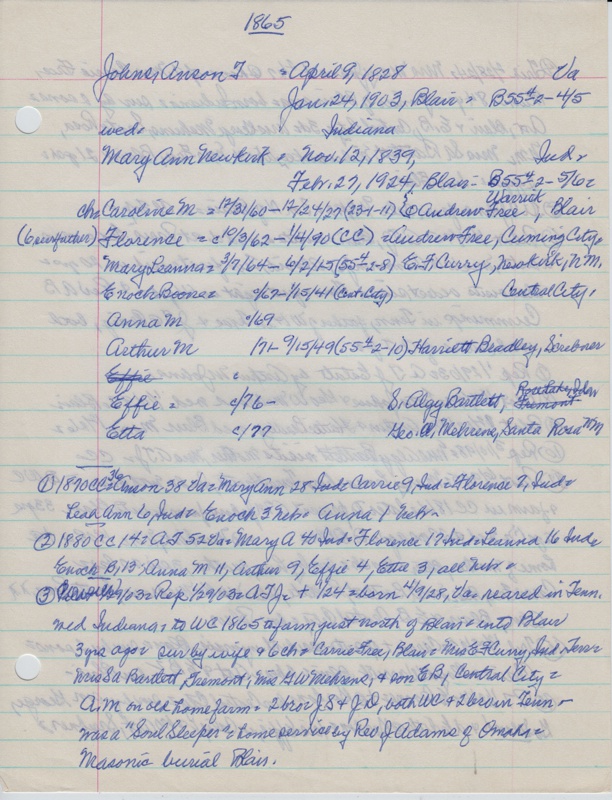 1865
Johns, Anson T = April 9, 1828 Va
Jan. 24, 1903, Blair = B55#2-4/5
wed= Indiana
Mary Ann Newkirk = Nov. 12, 1839, Ind=
Febr. 27, 1924, Blair - B55#2-5/6=
Warrick
ch= Caroline M = 12/31/60 - 12/24/27 (23-1-11) Andrew Free - Blair
Florence = c10/3/62 - 1/4/90 (CC) = Andrew Free, Cuming City=
Mary Leanna = 3/7/64 - 6/2/15 (55#2-8) E. F. Curry, Newkirk, N.M.
Enoch Boone = c/67-1/15/41 (Cent. City) Central City,
Anna M c/69
Arthur M 71 - 9/15/49 (55#2-10) Harriett Bradley, Scribner
Effie c
Effie = c/76 - S. Algy Bartlett, Fremont
Etta c/77 Geo. W, Mehrens, Santa Rosa NM
① 1870 CC = Anson 38 Va = Mary Ann 28 Ind = Carrie 9, Ind = Florence 7, Ind=
Lead Ann 6, Ind = Enoch 3 Neb = Anna 1 Nebr.
② 1880 CC 14 = AT 52 Va = Mary A 40 Ind = Florence 17 Ind = Leanna 16 Ind=
Enoch B, 13 Anna M 11, Arthur 9, Effie 4, Etta 3, all Neb =
③ 1/29/03 = Rep 1/29/03 = ATJ = + 1/24 = born 4/9/28, Va = reared in Tenn.
wed Indiana = to WC 1865 = farm just north of Blair = into Blair
3 yrs ago = sur by wife & 6 ch = Carrie Free, Blair = Mrs E F Curry, Ind. Terr=
Mrs Sa Bartlett, Fremont; Mrs G W Mehrens, & son EB, Central City =
A.M on old home farm = 2 bro J S & J D, both WC & 2 bro in Tenn -
was a "Soul Sleeper" = home service by Rev J Adams of Omaha =
Masonic burial Blair.